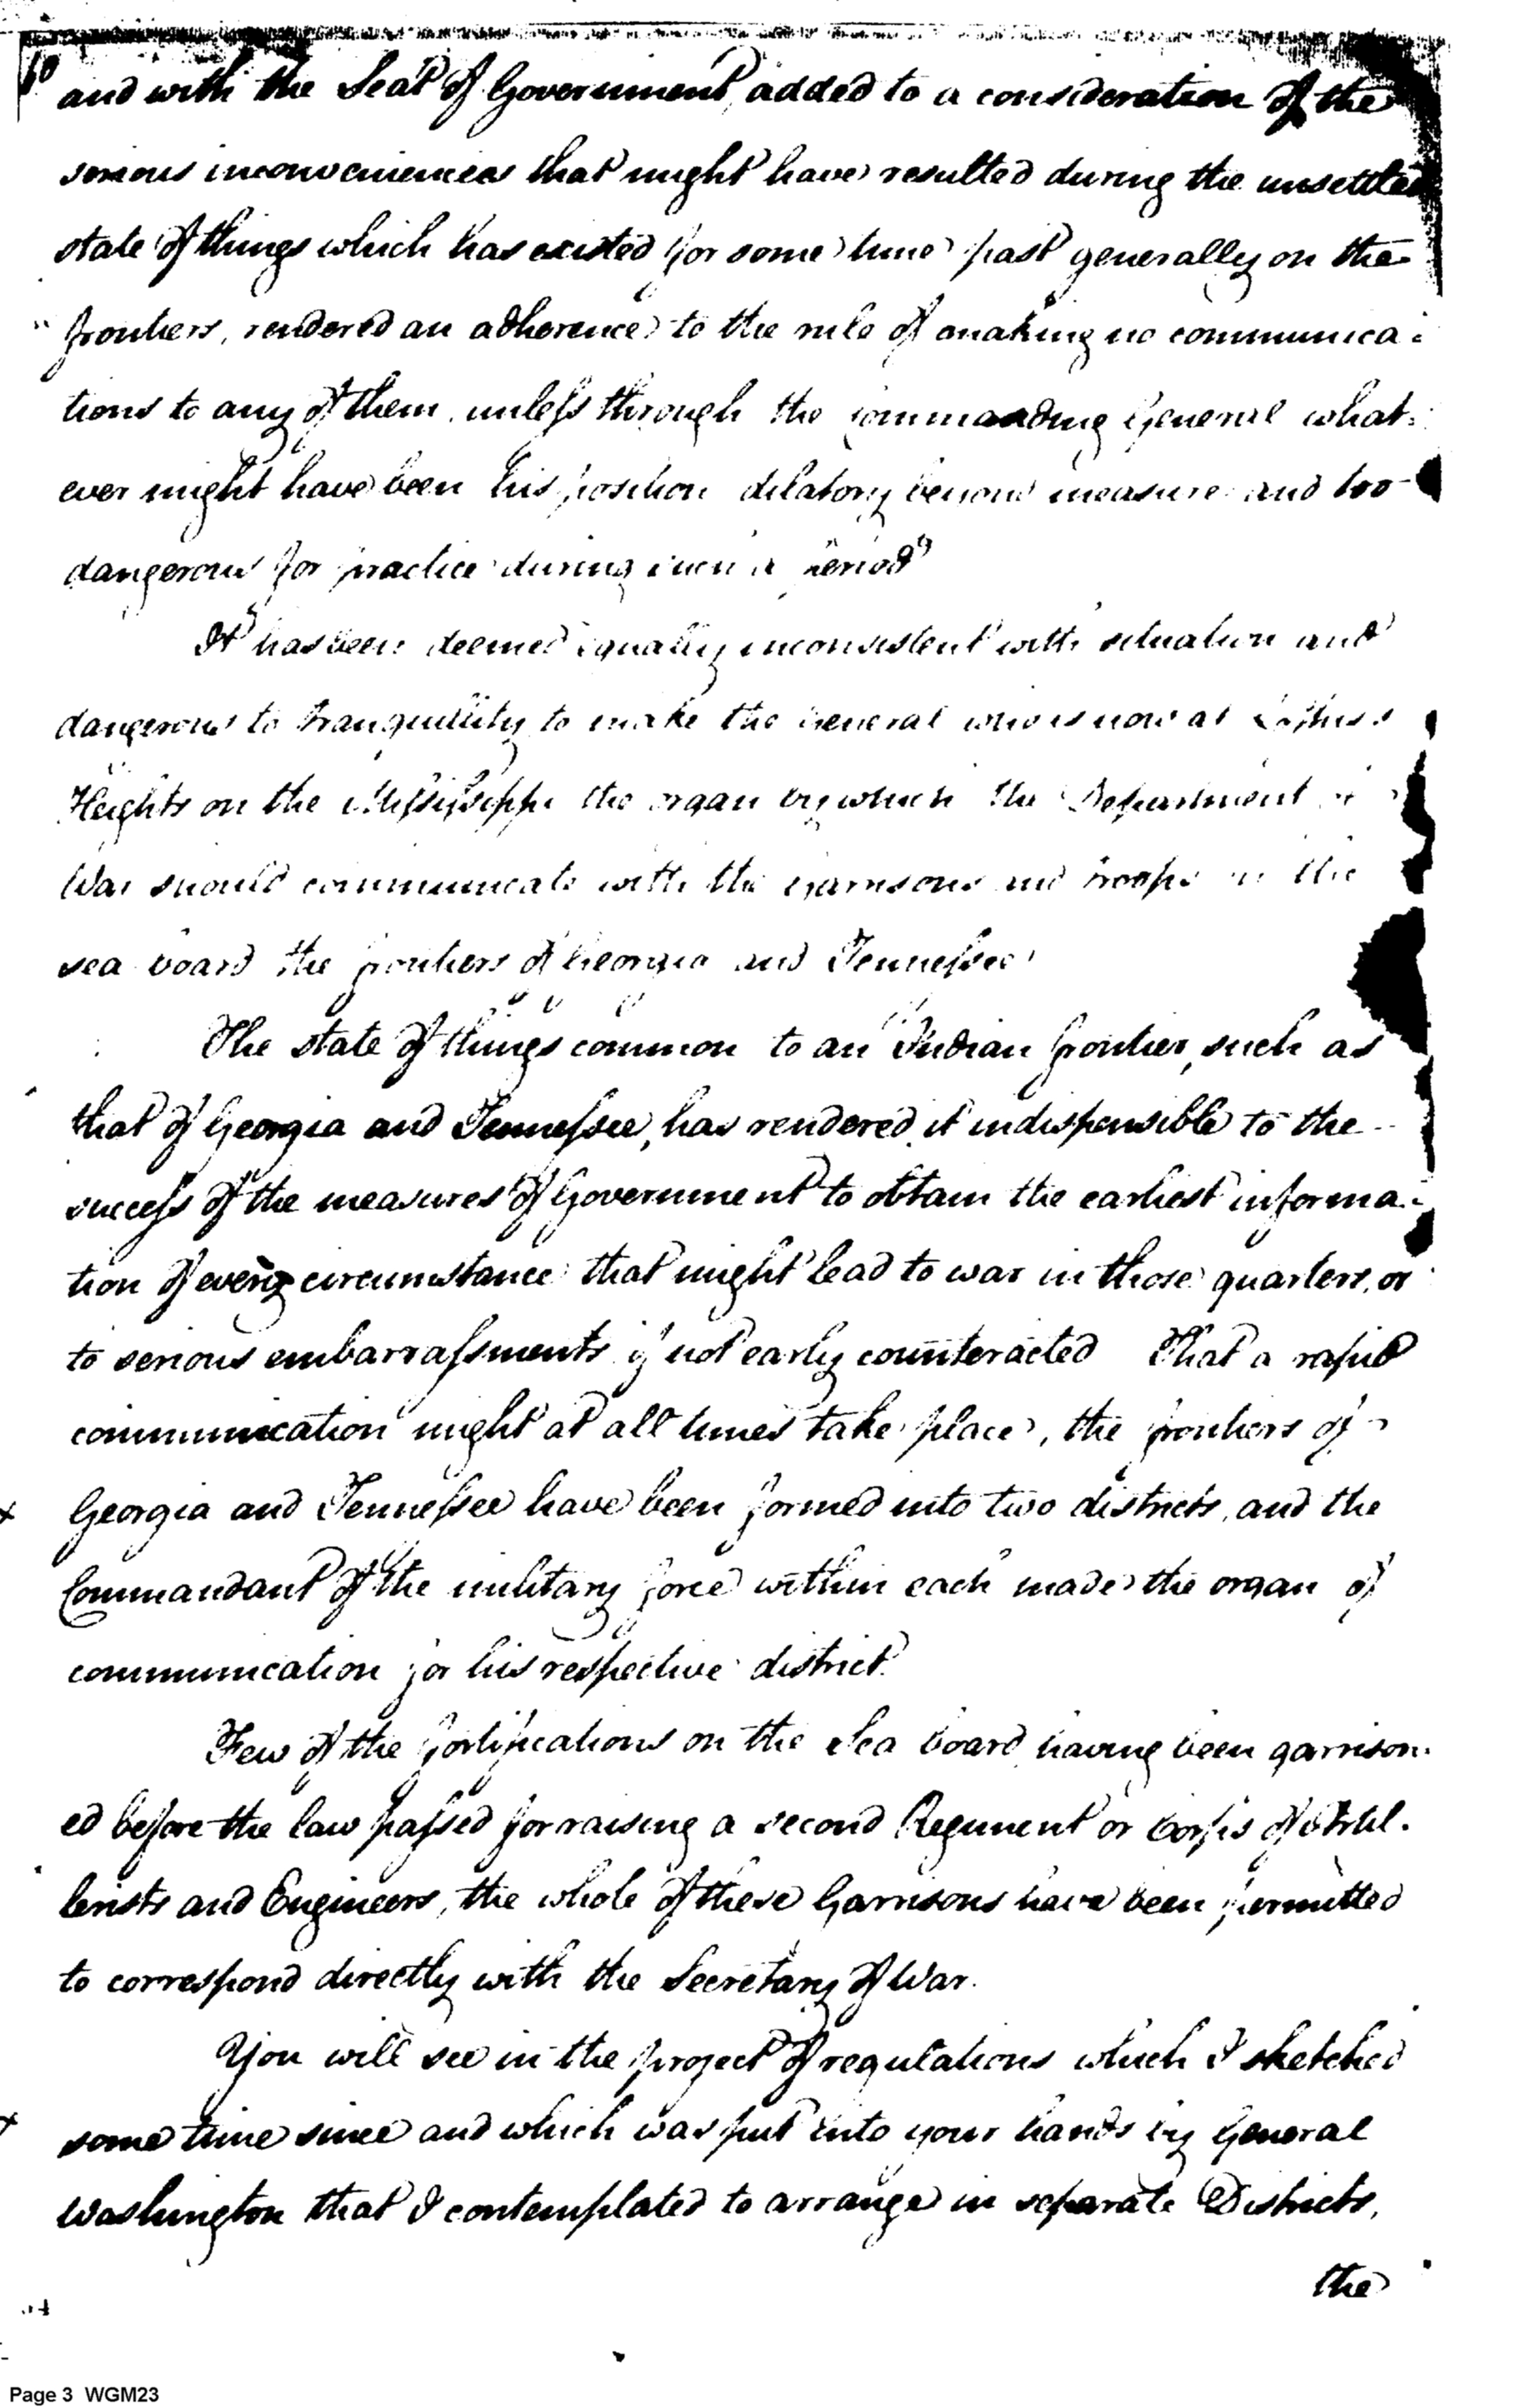 10
and with the Seat of Government, added to a consideration of the
serious inconveniencies that might have resulted during the unsettled
state of things which has existed for some time past generally on the
frontiers, rendered an adherence to the rule of making no communica-
tions to any of them, unless through the commanding General what-
ever might have been his position dilatory beyond measure and too
dangerous for practice during such a period
It has been deemed equally inconsistent with situation and
dangerous to tranquillity to make the General who is now at
Heights on the Mississippi the organ by which the Department of
War should communicate with the garrisons and troops on the
sea board the frontiers of Georgia and Tennessee
The state of things common to an Indian frontier, such as
that of Georgia and Tennessee, has rendered it indispensible to the
success of the measures of Government to obtain the earliest informa-
tion of every circumstance that might lead to war in those quarters, or
to serious embarrassments if not early counteracted That a rapid
communication might at all times take place, the frontiers of
Georgia and Tennessee have been formed into two districts, and the
Commandant of the military force within each made the organ of
communication for his respective district.
Few of the fortifications on the Sea board having been garrison-
ed before the law passed for raising a second Regiment or Corps of Artil-
lerists and Engineers, the whole of these Garrisons have been permitted
to correspond directly with the Secretary of War.
You will see in the project of regulations which I sketched
some time since and which was put into your hands by General
Washington that I contemplated to arrange in separate Districts,
the
Page 3 WGM23